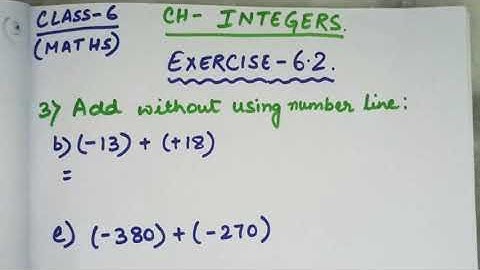 CLASS-6 CH- INTEGERS.
(MATHS)
EXERCISE-6.2.
3) Add without using number line:
b) (-13) + (+18)
=
e) (-380) + (-270)